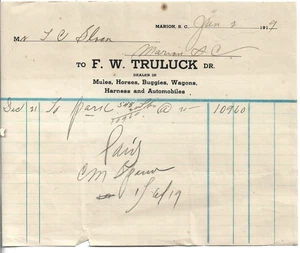 MARION, S. C. Jan 2 1919
M T C Sloan
Marion S.C.
TO F. W. TRULUCK DR.
DEALER IN
Mules, Horses, Buggies, Wagons,
Harness and Automobiles
Dec 31 To @ 10960
Paid
C M
1/6/19